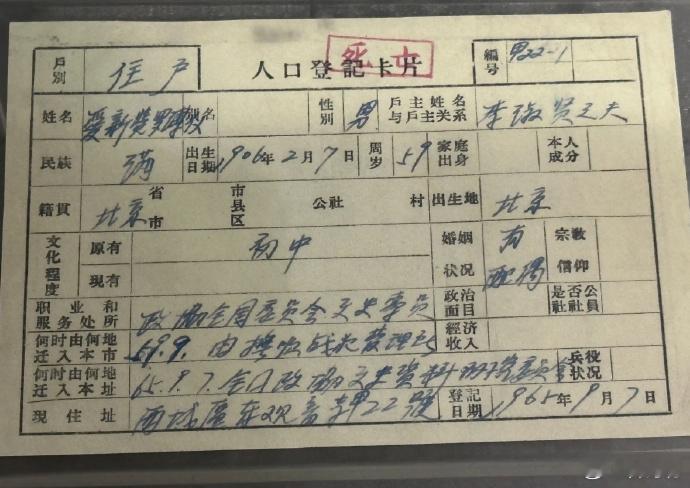 死亡
戶別 住戶 人口登記卡片 編号 甲22-1
姓名 愛新覺羅溥儀 别名 性别 男 戶主姓名与戶主关系 李淑贤之夫
民族 满 出生日期 1906年2月7日 周岁 59 家庭出身 本人成分
籍貫 北京 省市 市县区 公社 村 出生地 北京
文化程度 原有 初中 現有 婚姻状况 有配偶 宗教信仰
职业和服务处所 政協全国委员会文史专员 政治面目 是否公社社員
何时由何地迁入本市 59.9. 由撫順战犯管理所 經济收入
何时由何地迁入本址 65.9.7. 全国政协文史资料研究委员会 兵役状况
現住址 西城區东观音寺甲22號 登記日期 1965年9月7日